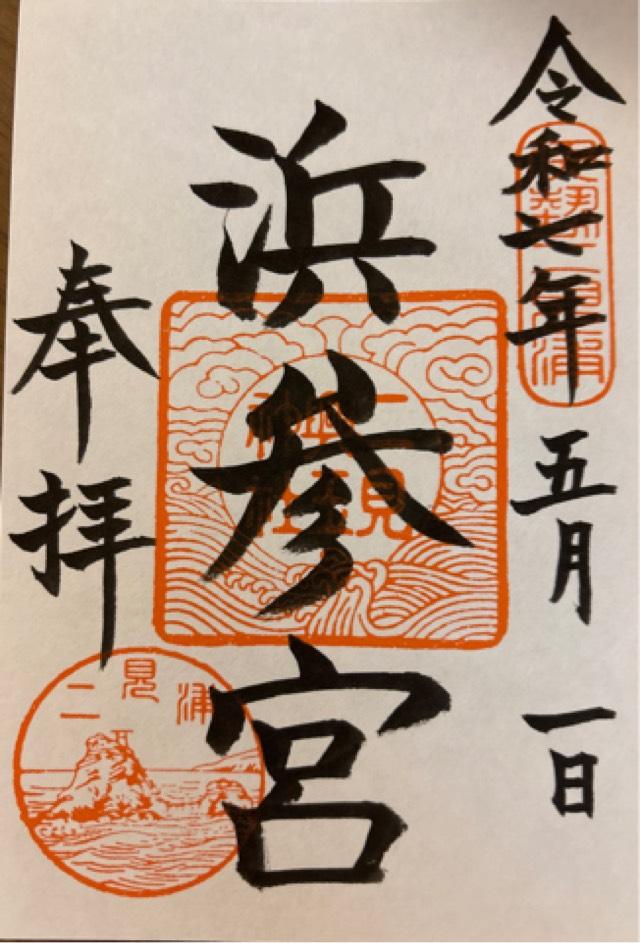 令和七年五月一日
伊勢二見浦
浜参宮
二見
興玉
神社
奉拝
二見浦